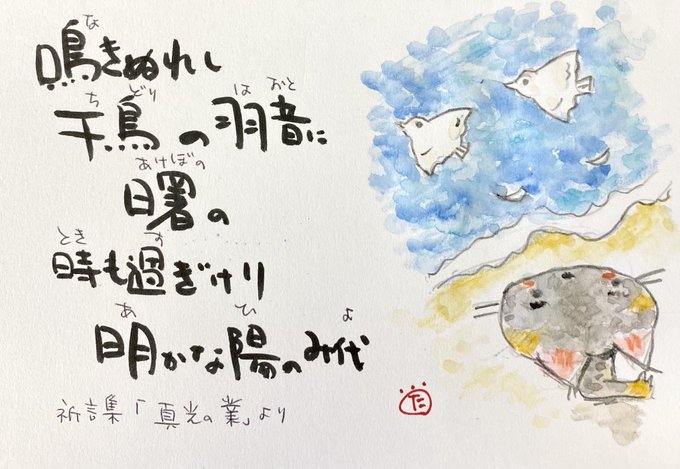 な
鳴きぬれし
ち どり は おと
千鳥の羽音に
あけぼの
曙の
とき す
時も過ぎけり
あ ひ よ
明かな陽のみ代
祈言集「真光の業」より